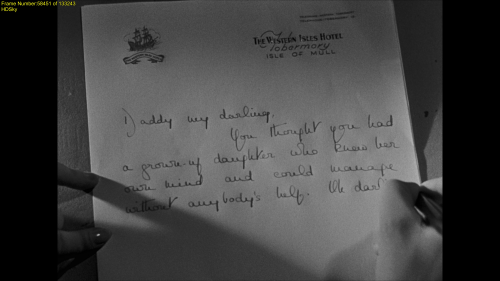 Frame Number:58451 of 133243
HDSky
THE WESTERN ISLES HOTEL
Tobermory
ISLE OF MULL
Daddy my darling,
You thought you had
a grown-up daughter who knew her
own mind and could manage
without anybody's help. Oh darl